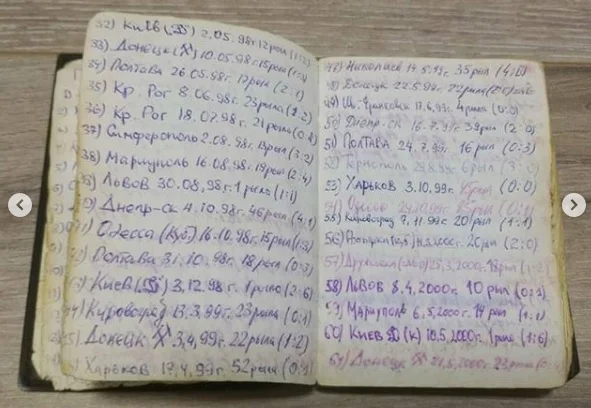 32) Київ 2.05.98г 12 рыл (1:2)
33) Донецк (X) 10.05.98г 15 рыл
34) Полтава 26.05.98г. 17 рыл (2:1)
35) Кр. Рог 8.06.98г. 23 рыла
36) Кр. Рог 18.07.98г. 21 рыла
37) Симферополь 2.08.98г. 13 рыл (3:2)
38) Мариуполь 16.08.98г. 19 рыл (2:4)
Львов 30.08.98г. 1 рыло (1:1)
Днепр-ск 4.10.98г. 46 рыл (4:1)
Одесса (Куб.) 16.10.98г. 15 рыл (1:3)
Полтава 31.10.98г. 18 рыл
Киев 3.12.98г. 1 рыло (2:6)
Кировоград 13.3.99г. 23 рыла (0:1)
Донецк X 3.4.99г. 22 рыла (1:2)
Харьков 17.4.99г. 52 рыла
Николаев 14.5.99г. 35 рыл
Донецк 22.5.99г. 22 рыла
49) Ив. Франковск 17.6.99г. 4 рыла
50) Днепр-ск 16.7.99г. 39 рыл (2:0)
51) Полтава 24.7.99г. 16 рыл (0:3)
52) Тернополь 6 рыл
53) Харьков 3.10.99г. (0:0)
54) Одесса
55) Кировоград 7.11.99г. 20 рыл (1:1)
56) 2000г. 26 рыл (2:0)
57) Дружковка 25.3.2000г.
58) Львов 8.4.2000г. 10 рыл
59) Мариуполь 6.5.2000г. 14 рыл
60) Киев (к) 10.5.2000г. 1 рыло (1:6)
61) Донецк X 2000г. 23 рыла